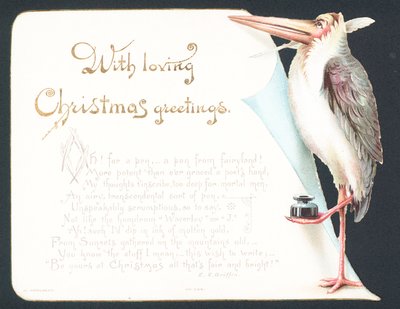 With loving
Christmas greetings.
Ah! for a pen,.. a pen from fairyland!
More potent than ever graced a poet's hand,
My thoughts t'inscribe, too deep for mortal men.
An airy, transcendental sort of pen,
Unspeakably scrumptious, so to say.
Not like the humdrum "Waverley" or "J."
Ah! such I'd dip in ink of molten gold,
From Sunsets gathered on the mountains old,..
You know the stuff I mean,.. this wish to write:..
"Be yours at Christmas all that's fair and bright!"